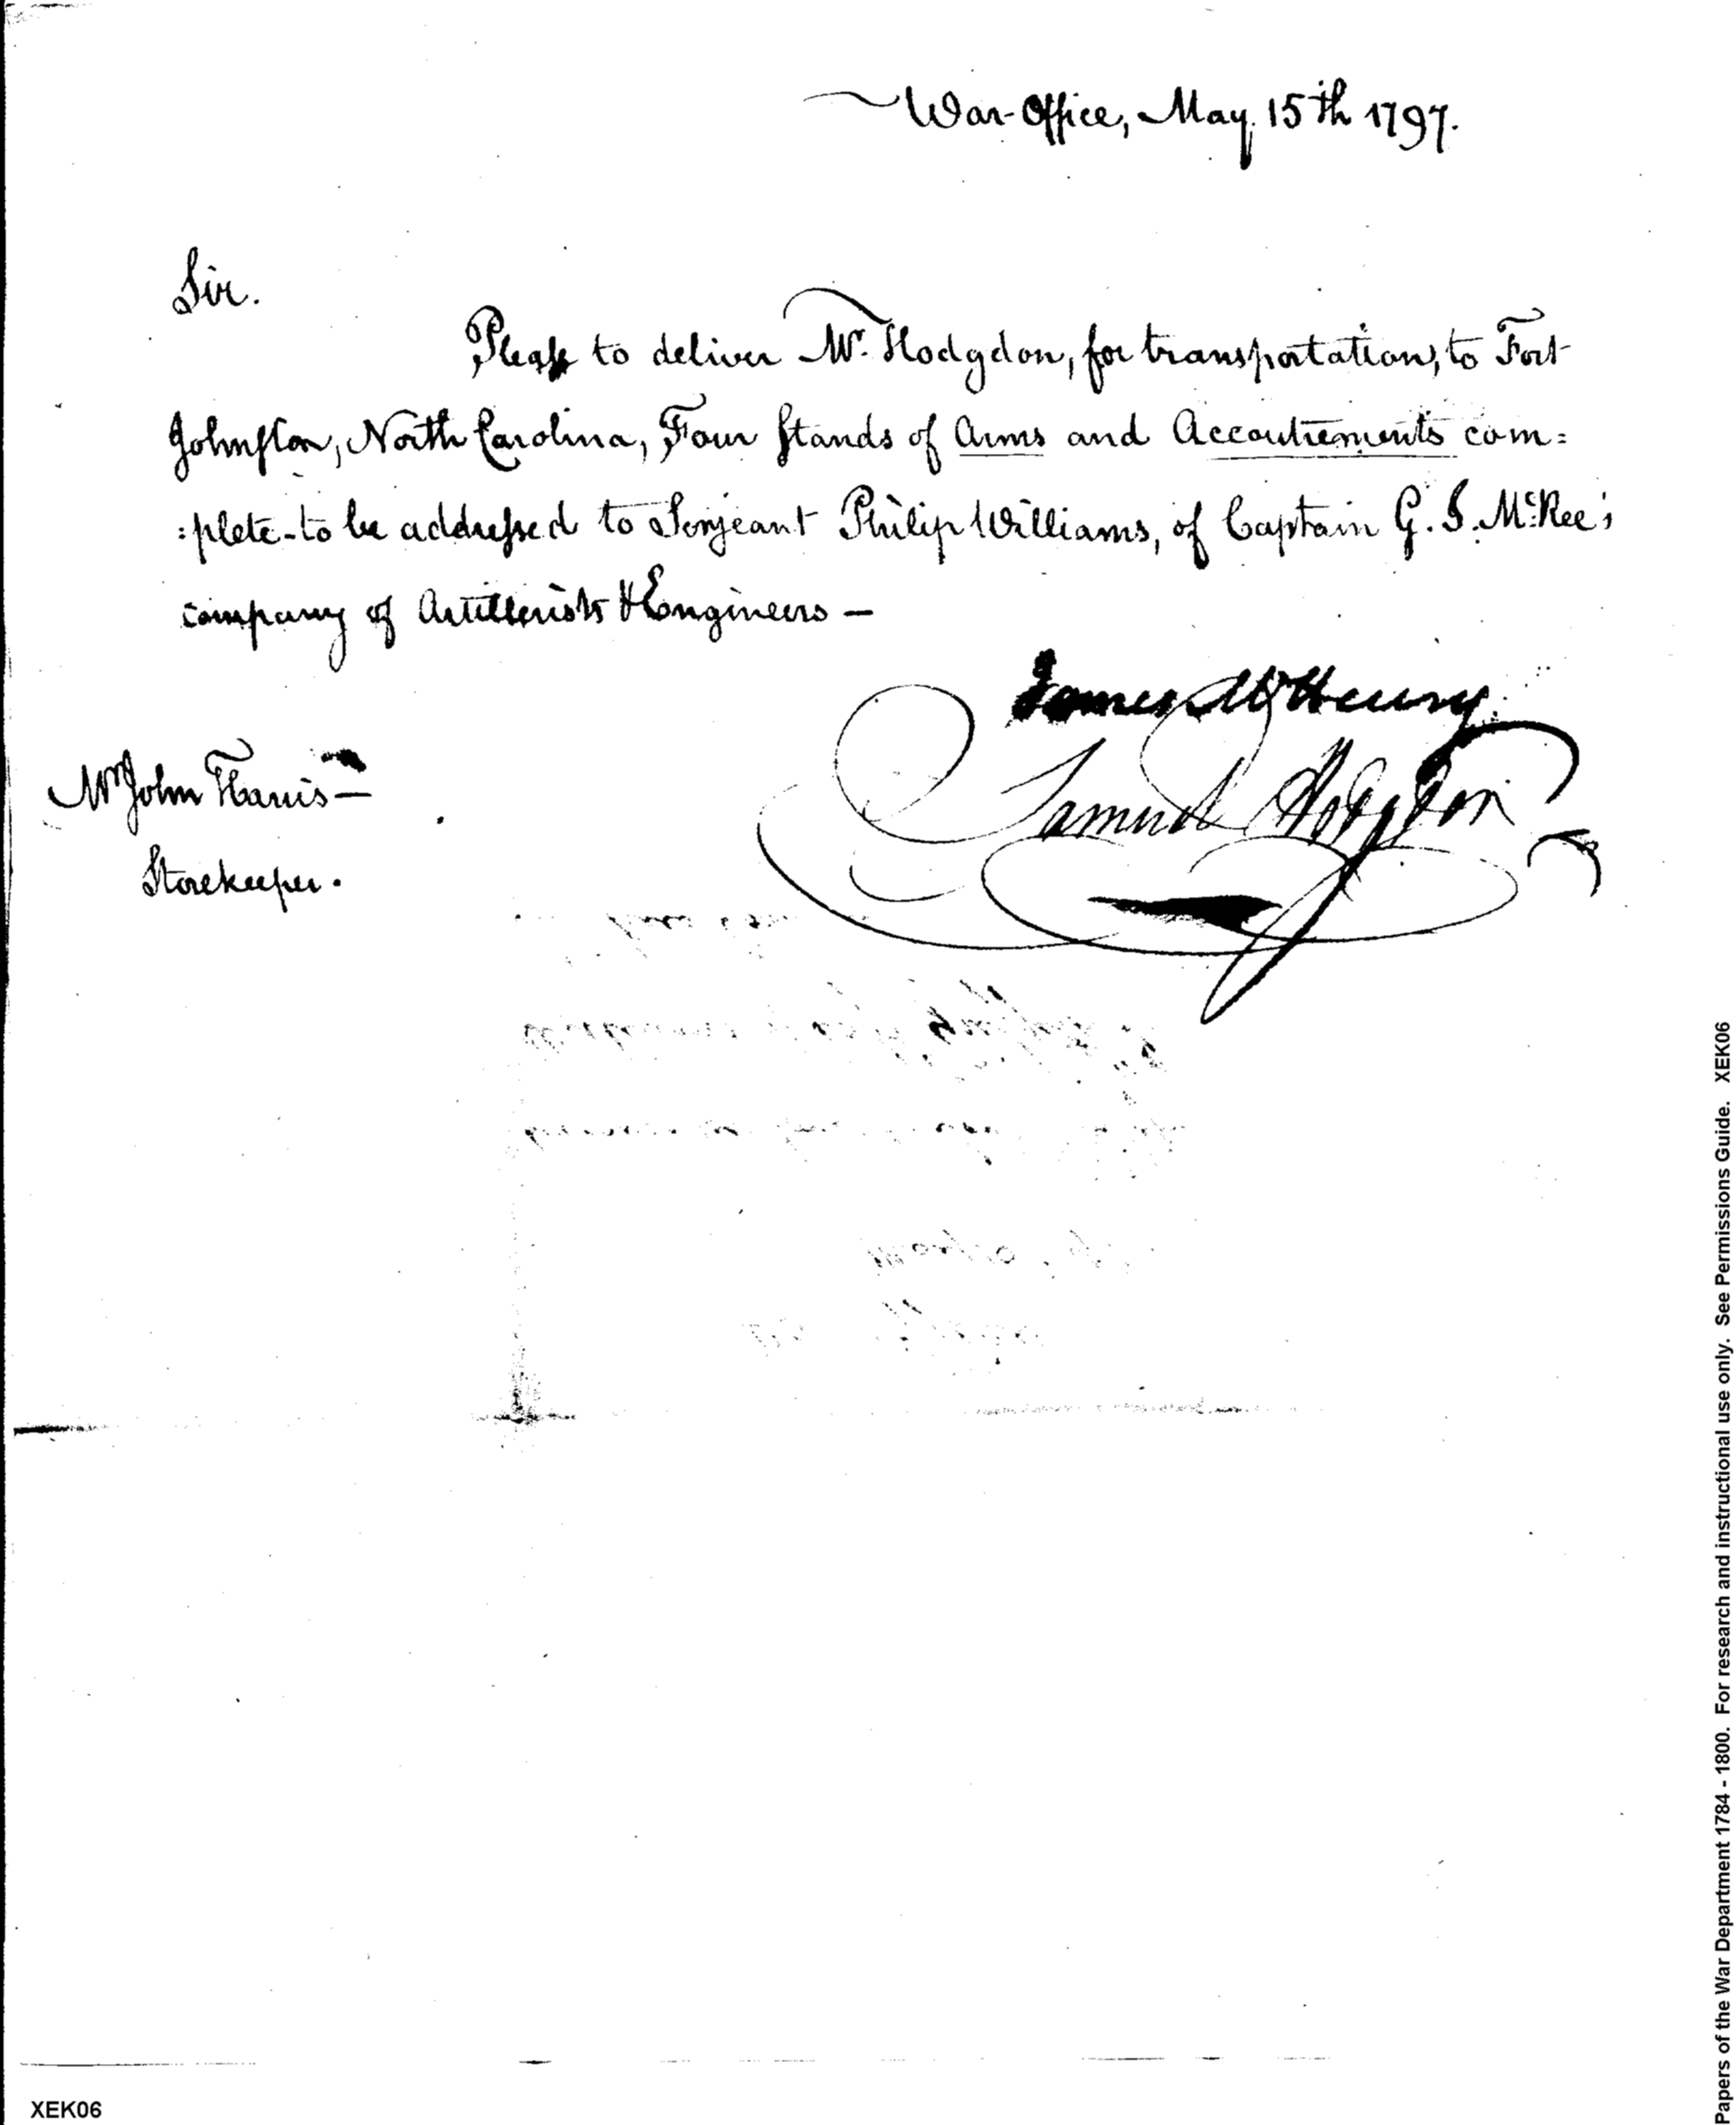 War-Office, May 15th 1797.
Sir.
Please to deliver Mr. Hodgdon, for transportation, to Fort
Johnston, North Carolina, Four Stands of Arms and Accoutrements com=
=plete - to be addressed to Serjeant Philip Williams, of Captain G. J. McRee's
company of Artillerists & Engineers —
James McHenry
Samuel Hodgdon
Mr John Harris —
Storekeeper.
XEK06
Papers of the War Department 1784 - 1800. For research and instructional use only. See Permissions Guide. XEK06